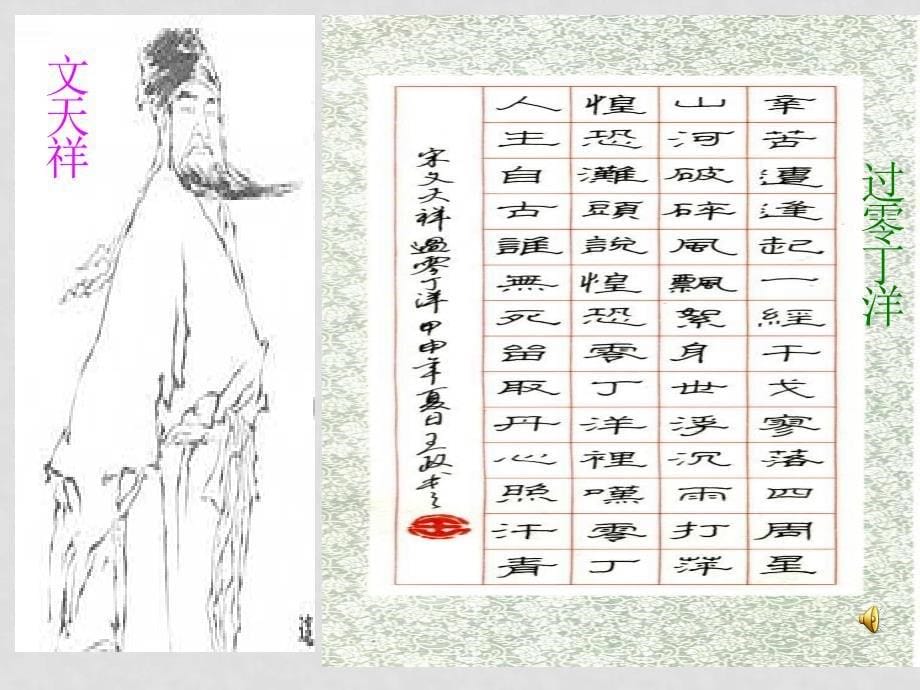 文天祥
过零丁洋
辛苦遭逢起一經干戈寥落四周星
山河破碎風飄絮身世浮沉雨打萍
惶恐灘頭說惶恐零丁洋裡嘆零丁
人生自古誰無死留取丹心照汗青
宋文天祥過零丁洋甲申年夏日王政书之